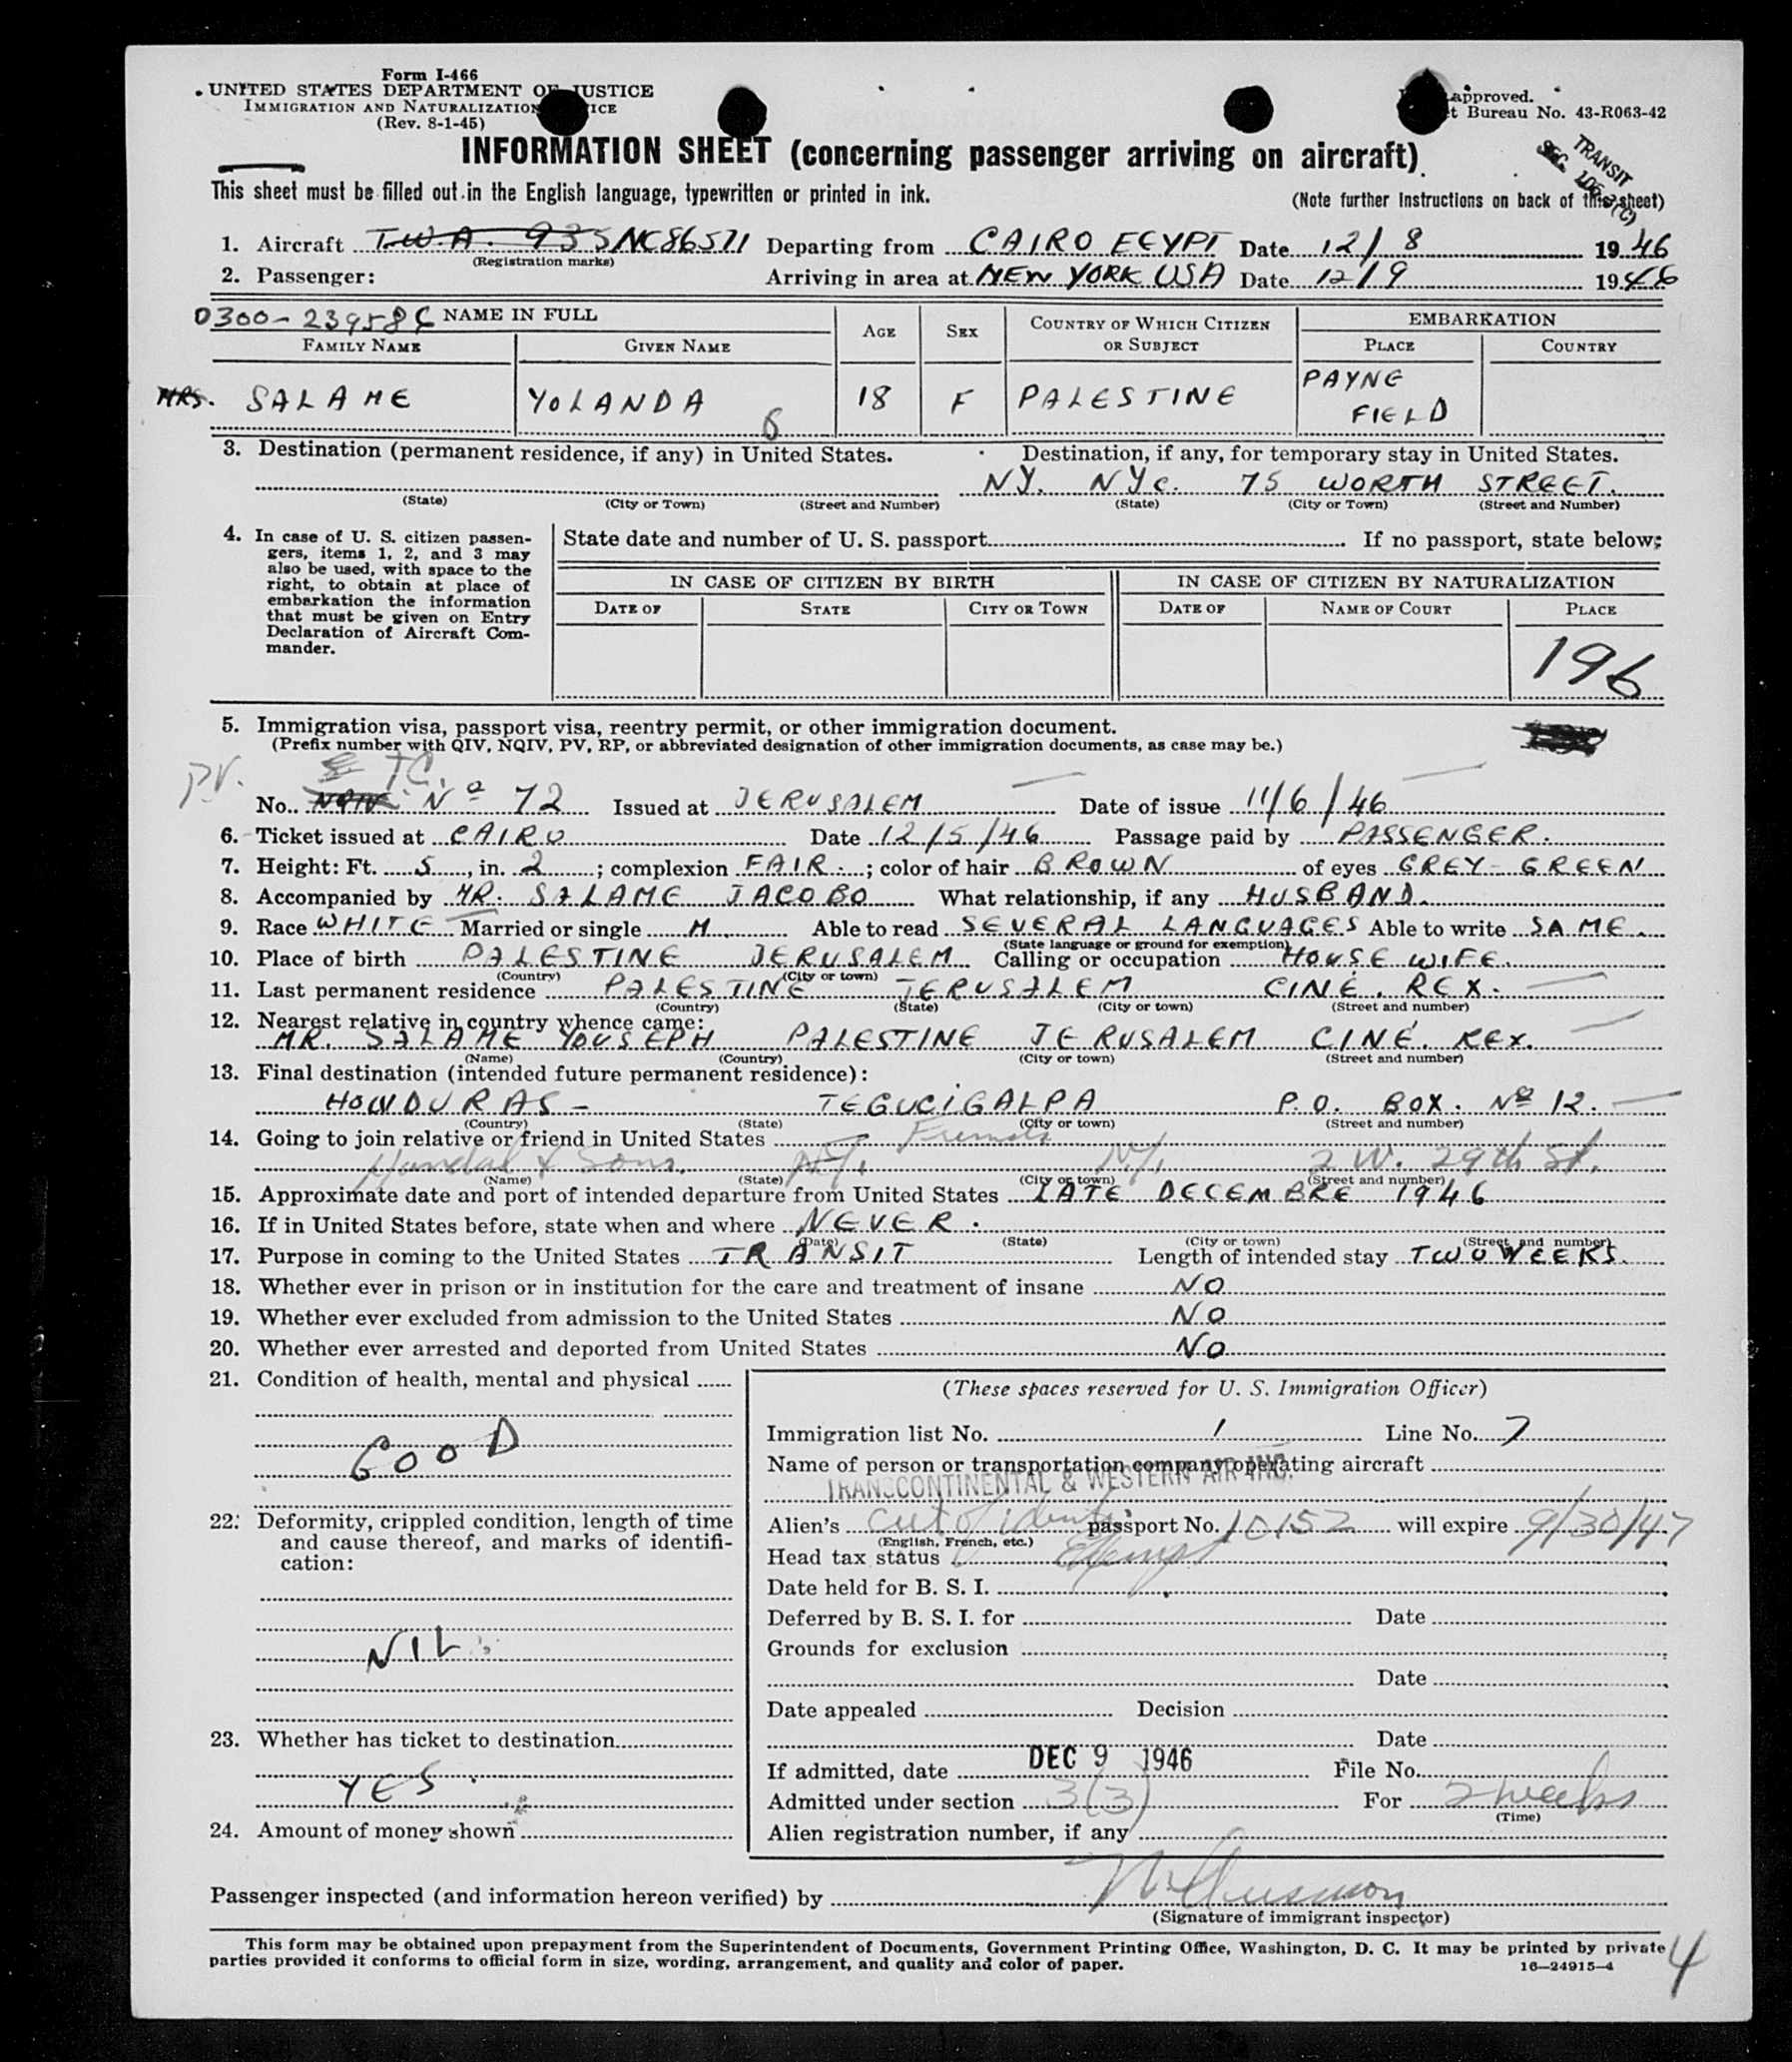 Form I-466
UNITED STATES DEPARTMENT OF JUSTICE
IMMIGRATION AND NATURALIZATION
(Rev. 8-1-45)
approved.
Bureau No. 43-R063-42
INFORMATION SHEET (concerning passenger arriving on aircraft)
TRANSIT
SEC.
This sheet must be filled out in the English language, typewritten or printed in ink.
(Note further instructions on back of this sheet)
1. Aircraft T.W.A. 935 NC86511 Departing from CAIRO EGYPT Date 12/8 1946
(Registration marks)
2. Passenger: Arriving in area at NEW YORK USA Date 12/9 1946
0300-23958 NAME IN FULL
FAMILY NAME GIVEN NAME AGE SEX COUNTRY OF WHICH CITIZEN OR SUBJECT EMBARKATION PLACE COUNTRY
MRS. SALAME YOLANDA 18 F PALESTINE PAYNE FIELD
3. Destination (permanent residence, if any) in United States. Destination, if any, for temporary stay in United States.
NY. NYC. 75 WORTH STREET.
(State) (City or Town) (Street and Number) (State) (City or Town) (Street and Number)
4. In case of U. S. citizen passengers, items 1, 2, and 3 may also be used, with space to the right, to obtain at place of embarkation the information that must be given on Entry Declaration of Aircraft Commander.
State date and number of U. S. passport If no passport, state below:
IN CASE OF CITIZEN BY BIRTH IN CASE OF CITIZEN BY NATURALIZATION
DATE OF STATE CITY OR TOWN DATE OF NAME OF COURT PLACE
196
5. Immigration visa, passport visa, reentry permit, or other immigration document.
(Prefix number with QIV, NQIV, PV, RP, or abbreviated designation of other immigration documents, as case may be.)
P.V. T.C.
No. Nº 72 Issued at JERUSALEM Date of issue 11/6/46
6. Ticket issued at CAIRO Date 12/5/46 Passage paid by PASSENGER.
7. Height: Ft. 5, in. 2; complexion FAIR.; color of hair BROWN of eyes GREY-GREEN
8. Accompanied by MR. SALAME JACOBO What relationship, if any HUSBAND.
9. Race WHITE Married or single M. Able to read SEVERAL LANGUAGES Able to write SAME.
(State language or ground for exemption)
10. Place of birth PALESTINE JERUSALEM Calling or occupation HOUSE WIFE.
(Country) (City or town)
11. Last permanent residence PALESTINE JERUSALEM CINE. REX.
(Country) (State) (City or town) (Street and number)
12. Nearest relative in country whence came:
MR. SALAME YOUSEPH PALESTINE JERUSALEM CINÉ. REX.
(Name) (Country) (City or town) (Street and number)
13. Final destination (intended future permanent residence):
HONDURAS - TEGUCIGALPA P.O. BOX. Nº 12.
(Country) (State) (City or town) (Street and number)
14. Going to join relative or friend in United States Friends
& Sons. N.Y. N.Y. 2 W. 29th St.
(Name) (State) (City or town) (Street and number)
15. Approximate date and port of intended departure from United States LATE DECEMBRE 1946
16. If in United States before, state when and where NEVER.
(Date) (State) (City or town) (Street and number)
17. Purpose in coming to the United States TRANSIT Length of intended stay TWO WEEKS.
18. Whether ever in prison or in institution for the care and treatment of insane NO
19. Whether ever excluded from admission to the United States NO
20. Whether ever arrested and deported from United States NO
21. Condition of health, mental and physical
GOOD
22. Deformity, crippled condition, length of time and cause thereof, and marks of identification:
NIL
23. Whether has ticket to destination
YES.
24. Amount of money shown
(These spaces reserved for U. S. Immigration Officer)
Immigration list No. 1 Line No. 7
Name of person or transportation company operating aircraft
TRANSCONTINENTAL & WESTERN AIR INC.
Alien's passport No. 10152 will expire 9/30/47
(English, French, etc.)
Head tax status Exempt
Date held for B. S. I.
Deferred by B. S. I. for Date
Grounds for exclusion
Date
Date appealed Decision
Date
If admitted, date DEC 9 1946 File No.
Admitted under section 3(3) For 2 weeks
(Time)
Alien registration number, if any
Passenger inspected (and information hereon verified) by
(Signature of immigrant inspector)
This form may be obtained upon prepayment from the Superintendent of Documents, Government Printing Office, Washington, D. C. It may be printed by private
parties provided it conforms to official form in size, wording, arrangement, and quality and color of paper.
16—24915-4
4